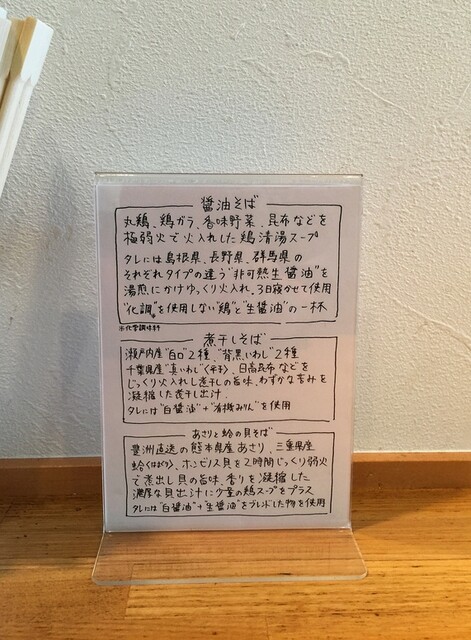 醤油そば
丸鶏、鶏ガラ、香味野菜、昆布などを
極弱火で火入れした鶏清湯スープ
タレには島根県、長野県、群馬県の
それぞれタイプの違う"非加熱生醤油"を
湯煎にかけゆっくり火入れ。3日寝かせて使用
"化調※を使用しない"鶏"と"生醤油"の一杯
※化学調味料
煮干しそば
瀬戸内産"白口"2種、"背黒いわし"2種
千葉県産"真いわし"(平子)、日高昆布などを
じっくり火入れし煮干しの旨味、わずかな苦みを
凝縮した煮干し出汁。
タレには"白醤油"+"有機みりん"を使用
あさりと蛤の貝そば
豊洲直送の熊本県産あさり、三重県産
蛤(はまぐり)、ホンビノス貝を2時間じっくり弱火
で煮出し貝の旨味、香りを凝縮した
濃厚な貝出汁に少量の鶏スープをプラス
タレには"白醤油"+"生醤油"をブレンドした物を使用